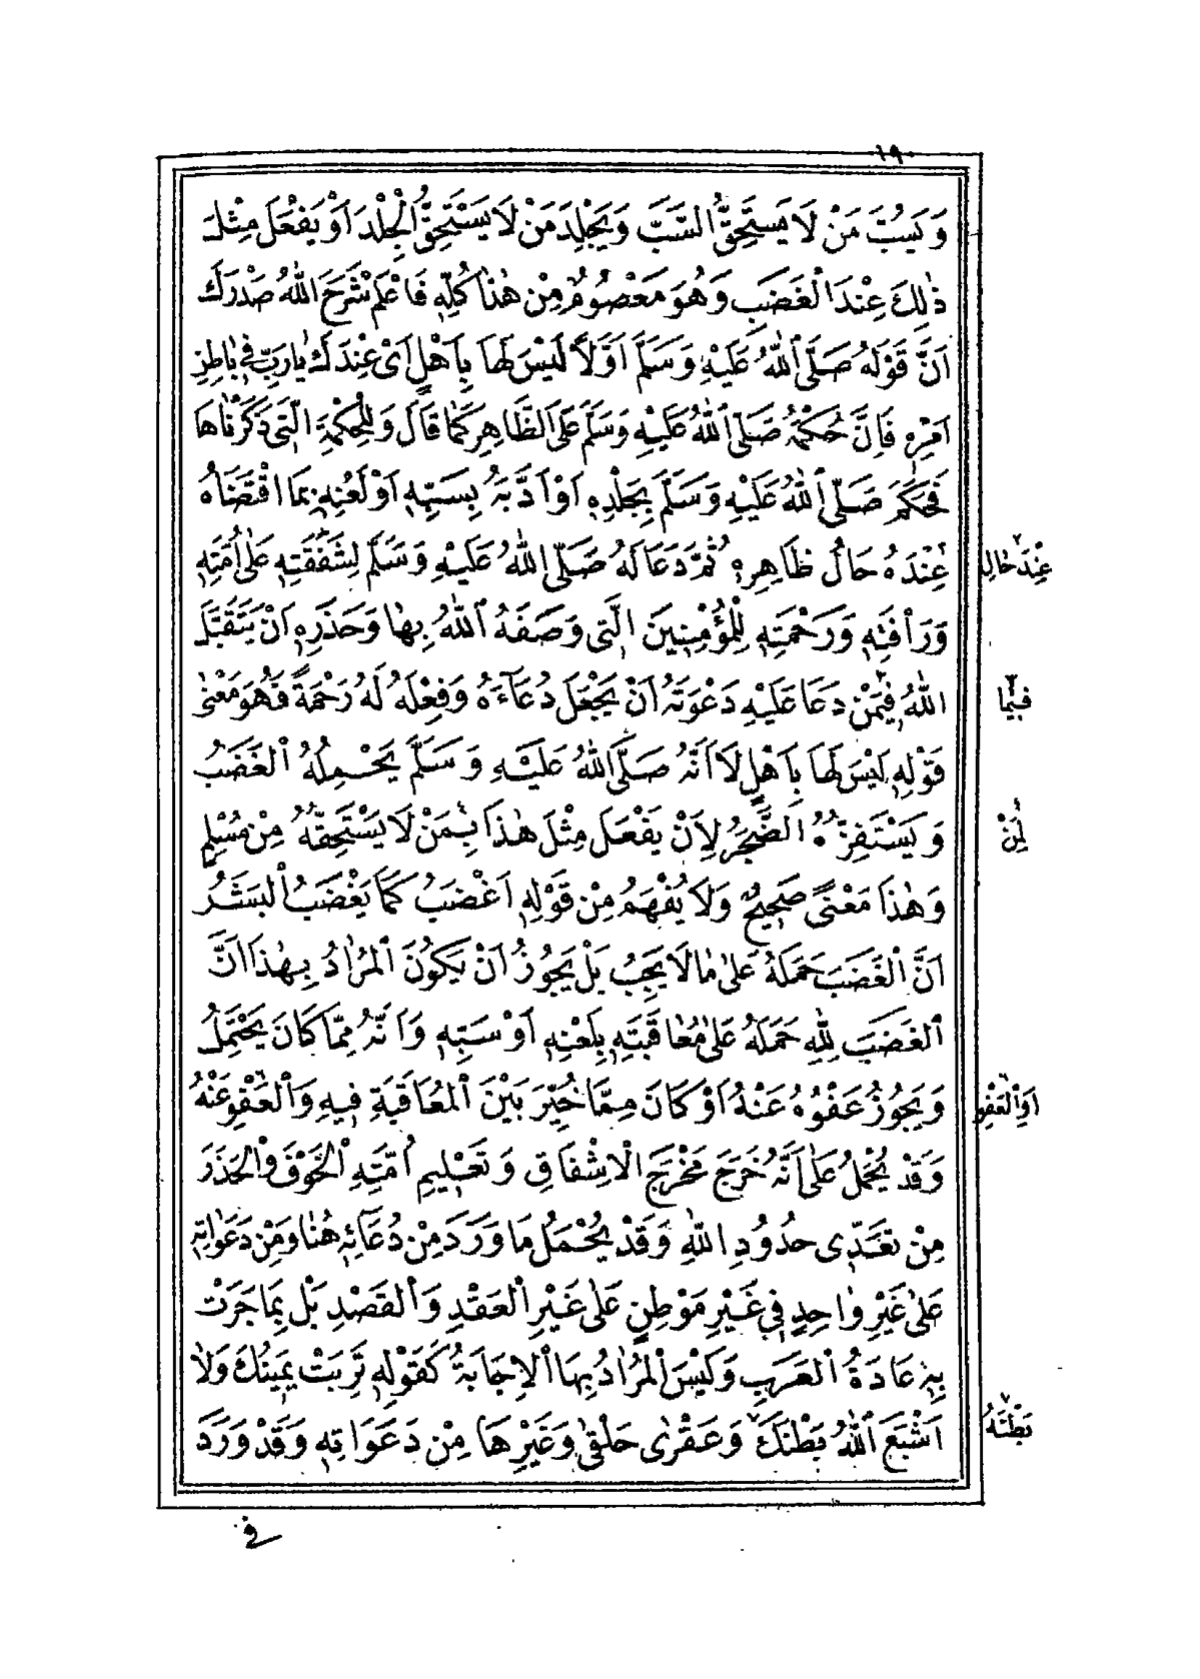 ١٩٠
وَيَسُبَّ مَنْ لَا يَسْتَحِقُّ السَّبَّ وَيَجْلِدَ مَنْ لَا يَسْتَحِقُّ الْجَلْدَ اَوْ يَفْعَلَ مِثْلَ
ذٰلِكَ عِنْدَ الْغَضَبِ وَهُوَ مَعْصُومٌ مِنْ هٰذَا كُلِّهِ فَاعْلَمْ شَرَحَ اللّٰهُ صَدْرَكَ
اَنَّ قَوْلَهُ صَلَّى اللّٰهُ عَلَيْهِ وَسَلَّمَ اَوَّلًا لَيْسَ لَهَا بِاَهْلٍ اَىْ عِنْدَكَ يَارَبِّ فِى بَاطِنِ
اَمْرِهِ فَاِنَّ حُكْمَهُ صَلَّى اللّٰهُ عَلَيْهِ وَسَلَّمَ عَلَى الظَّاهِرِ كَمَا قَالَ وَلِلْحِكْمَةِ الَّتِى ذَكَرْنَاهَا
فَحَكَمَ صَلَّى اللّٰهُ عَلَيْهِ وَسَلَّمَ بِجَلْدِهِ اَوْ اَدَّبَهُ بِسَبِّهِ اَوْ لَعْنِهِ بِمَا اقْتَضَاهُ
عِنْدَهُ حَالُ ظَاهِرِهِ ثُمَّ دَعَا لَهُ صَلَّى اللّٰهُ عَلَيْهِ وَسَلَّمَ لِشَفَقَتِهِ عَلٰى اُمَّتِهِ
عِنْدَ حَالِ
وَرَأْفَتِهِ وَرَحْمَتِهِ لِلْمُؤْمِنِينَ الَّتِى وَصَفَهُ اللّٰهُ بِهَا وَحَذَرِهِ اَنْ يَتَقَبَّلَ
اللّٰهُ فِيمَنْ دَعَا عَلَيْهِ دَعْوَتَهُ اَنْ يَجْعَلَ دُعَآءَهُ وَفِعْلَهُ لَهُ رَحْمَةً فَهُوَ مَعْنٰى
فِيمَا
قَوْلِهِ لَيْسَ لَهَا بِاَهْلٍ لَا اَنَّهُ صَلَّى اللّٰهُ عَلَيْهِ وَسَلَّمَ يَحْمِلُهُ الْغَضَبُ
وَيَسْتَفِزُّهُ الضَّجَرُ لِاَنْ يَفْعَلَ مِثْلَ هٰذَا بِمَنْ لَا يَسْتَحِقُّهُ مِنْ مُسْلِمٍ
لِمَنْ
وَهٰذَا مَعْنًى صَحِيحٌ وَلَا يُفْهَمُ مِنْ قَوْلِهِ اَغْضَبُ كَمَا يَغْضَبُ الْبَشَرُ
اَنَّ الْغَضَبَ حَمَلَهُ عَلٰى مَا لَا يَجِبُ بَلْ يَجُوزُ اَنْ يَكُونَ الْمُرَادُ بِهٰذَا اَنَّ
الْغَضَبَ لِلّٰهِ حَمَلَهُ عَلٰى مُعَاقَبَتِهِ بِلَعْنِهِ اَوْ سَبِّهِ وَاَنَّهُ مِمَّا كَانَ يَحْتَمِلُ
وَيَجُوزُ عَفْوُهُ عَنْهُ اَوْ كَانَ مِمَّا خُيِّرَ بَيْنَ الْمُعَاقَبَةِ فِيهِ وَالْعَفْوِ عَنْهُ
اَوِ الْعَفْوِ
وَقَدْ يُحْمَلُ عَلٰى اَنَّهُ خَرَجَ مَخْرَجَ الْاِشْفَاقِ وَتَعْلِيمِ اُمَّتِهِ الْخَوْفَ وَالْحَذَرَ
مِنْ تَعَدِّى حُدُودِ اللّٰهِ وَقَدْ يُحْمَلُ مَا وَرَدَ مِنْ دُعَآئِهِ هُنَا وَمِنْ دَعَوَاتِهِ
عَلٰى غَيْرِ وَاحِدٍ فِى غَيْرِ مَوْطِنٍ عَلٰى غَيْرِ الْعَقْدِ وَالْقَصْدِ بَلْ بِمَا جَرَتْ
بِهِ عَادَةُ الْعَرَبِ وَلَيْسَ الْمُرَادُ بِهَا الْاِجَابَةُ كَقَوْلِهِ تَرِبَتْ يَمِينُكَ وَلَا
اَشْبَعَ اللّٰهُ بَطْنَكَ وَعَقْرٰى حَلْقٰى وَغَيْرِهَا مِنْ دَعَوَاتِهِ وَقَدْ وَرَدَ
بَطْنَهُ
فى